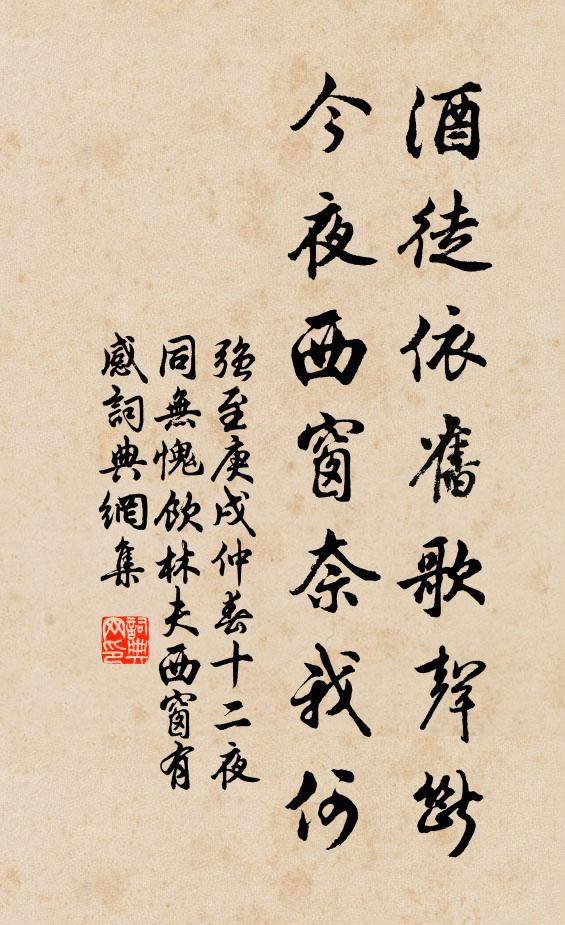 酒徒依舊歌聲斷
今夜西窗奈我何
強至庚戌仲春十二夜
同無愧飲林夫西窗有
感詞典網集
詞典網印